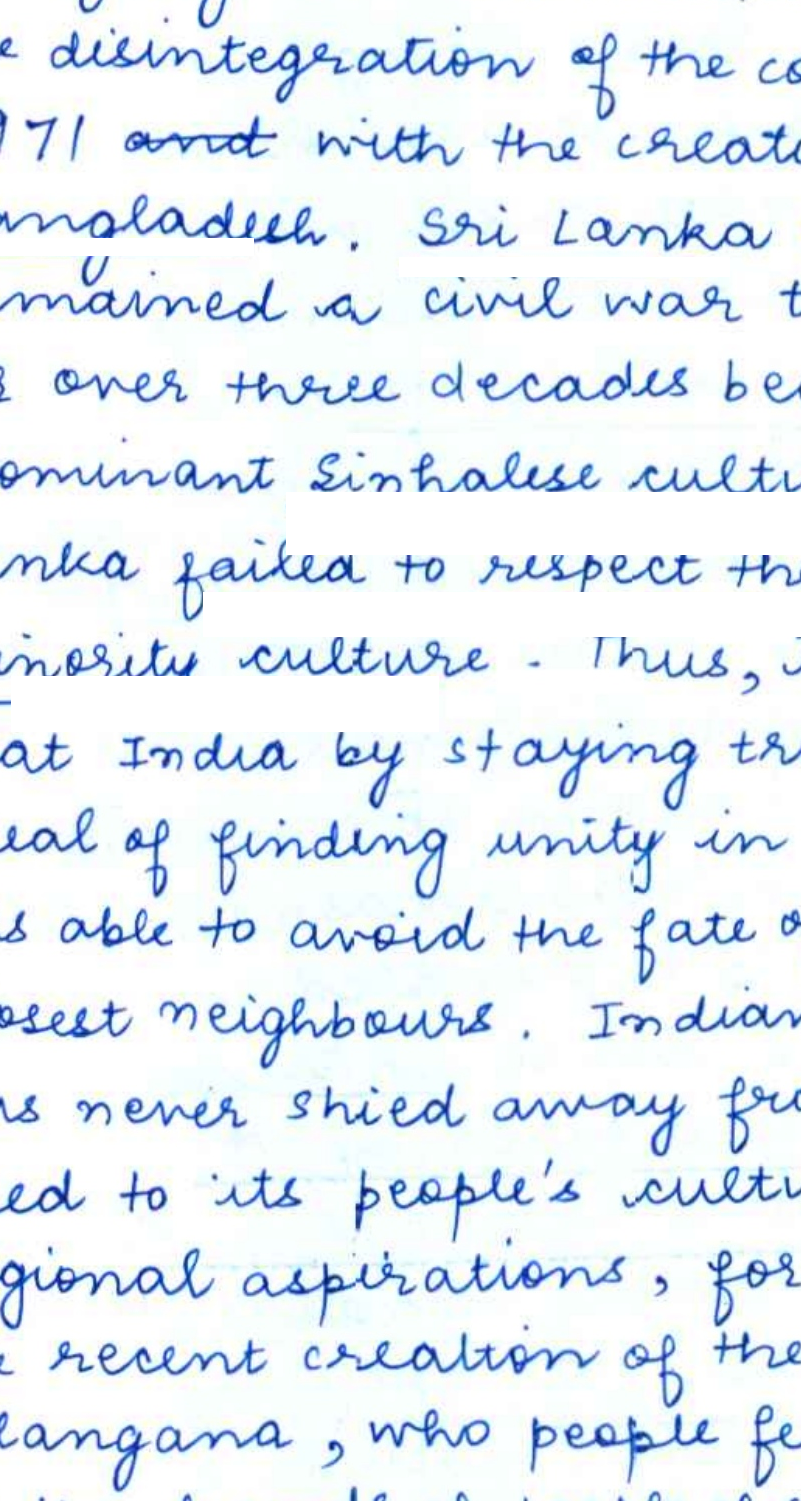 disintegration of the co
971 and with the creat
angladesh. Sri Lanka
mained a civil war t
over three decades be
ominant Sinhalese cultu
nka failed to respect the
inority culture. Thus, i
at India by staying tr
eal of finding unity in
s able to avoid the fate o
osest neighbours. Indian
as never shied away fro
ed to its people's cultu
gional aspirations, for
recent creation of the
langana, who people fe